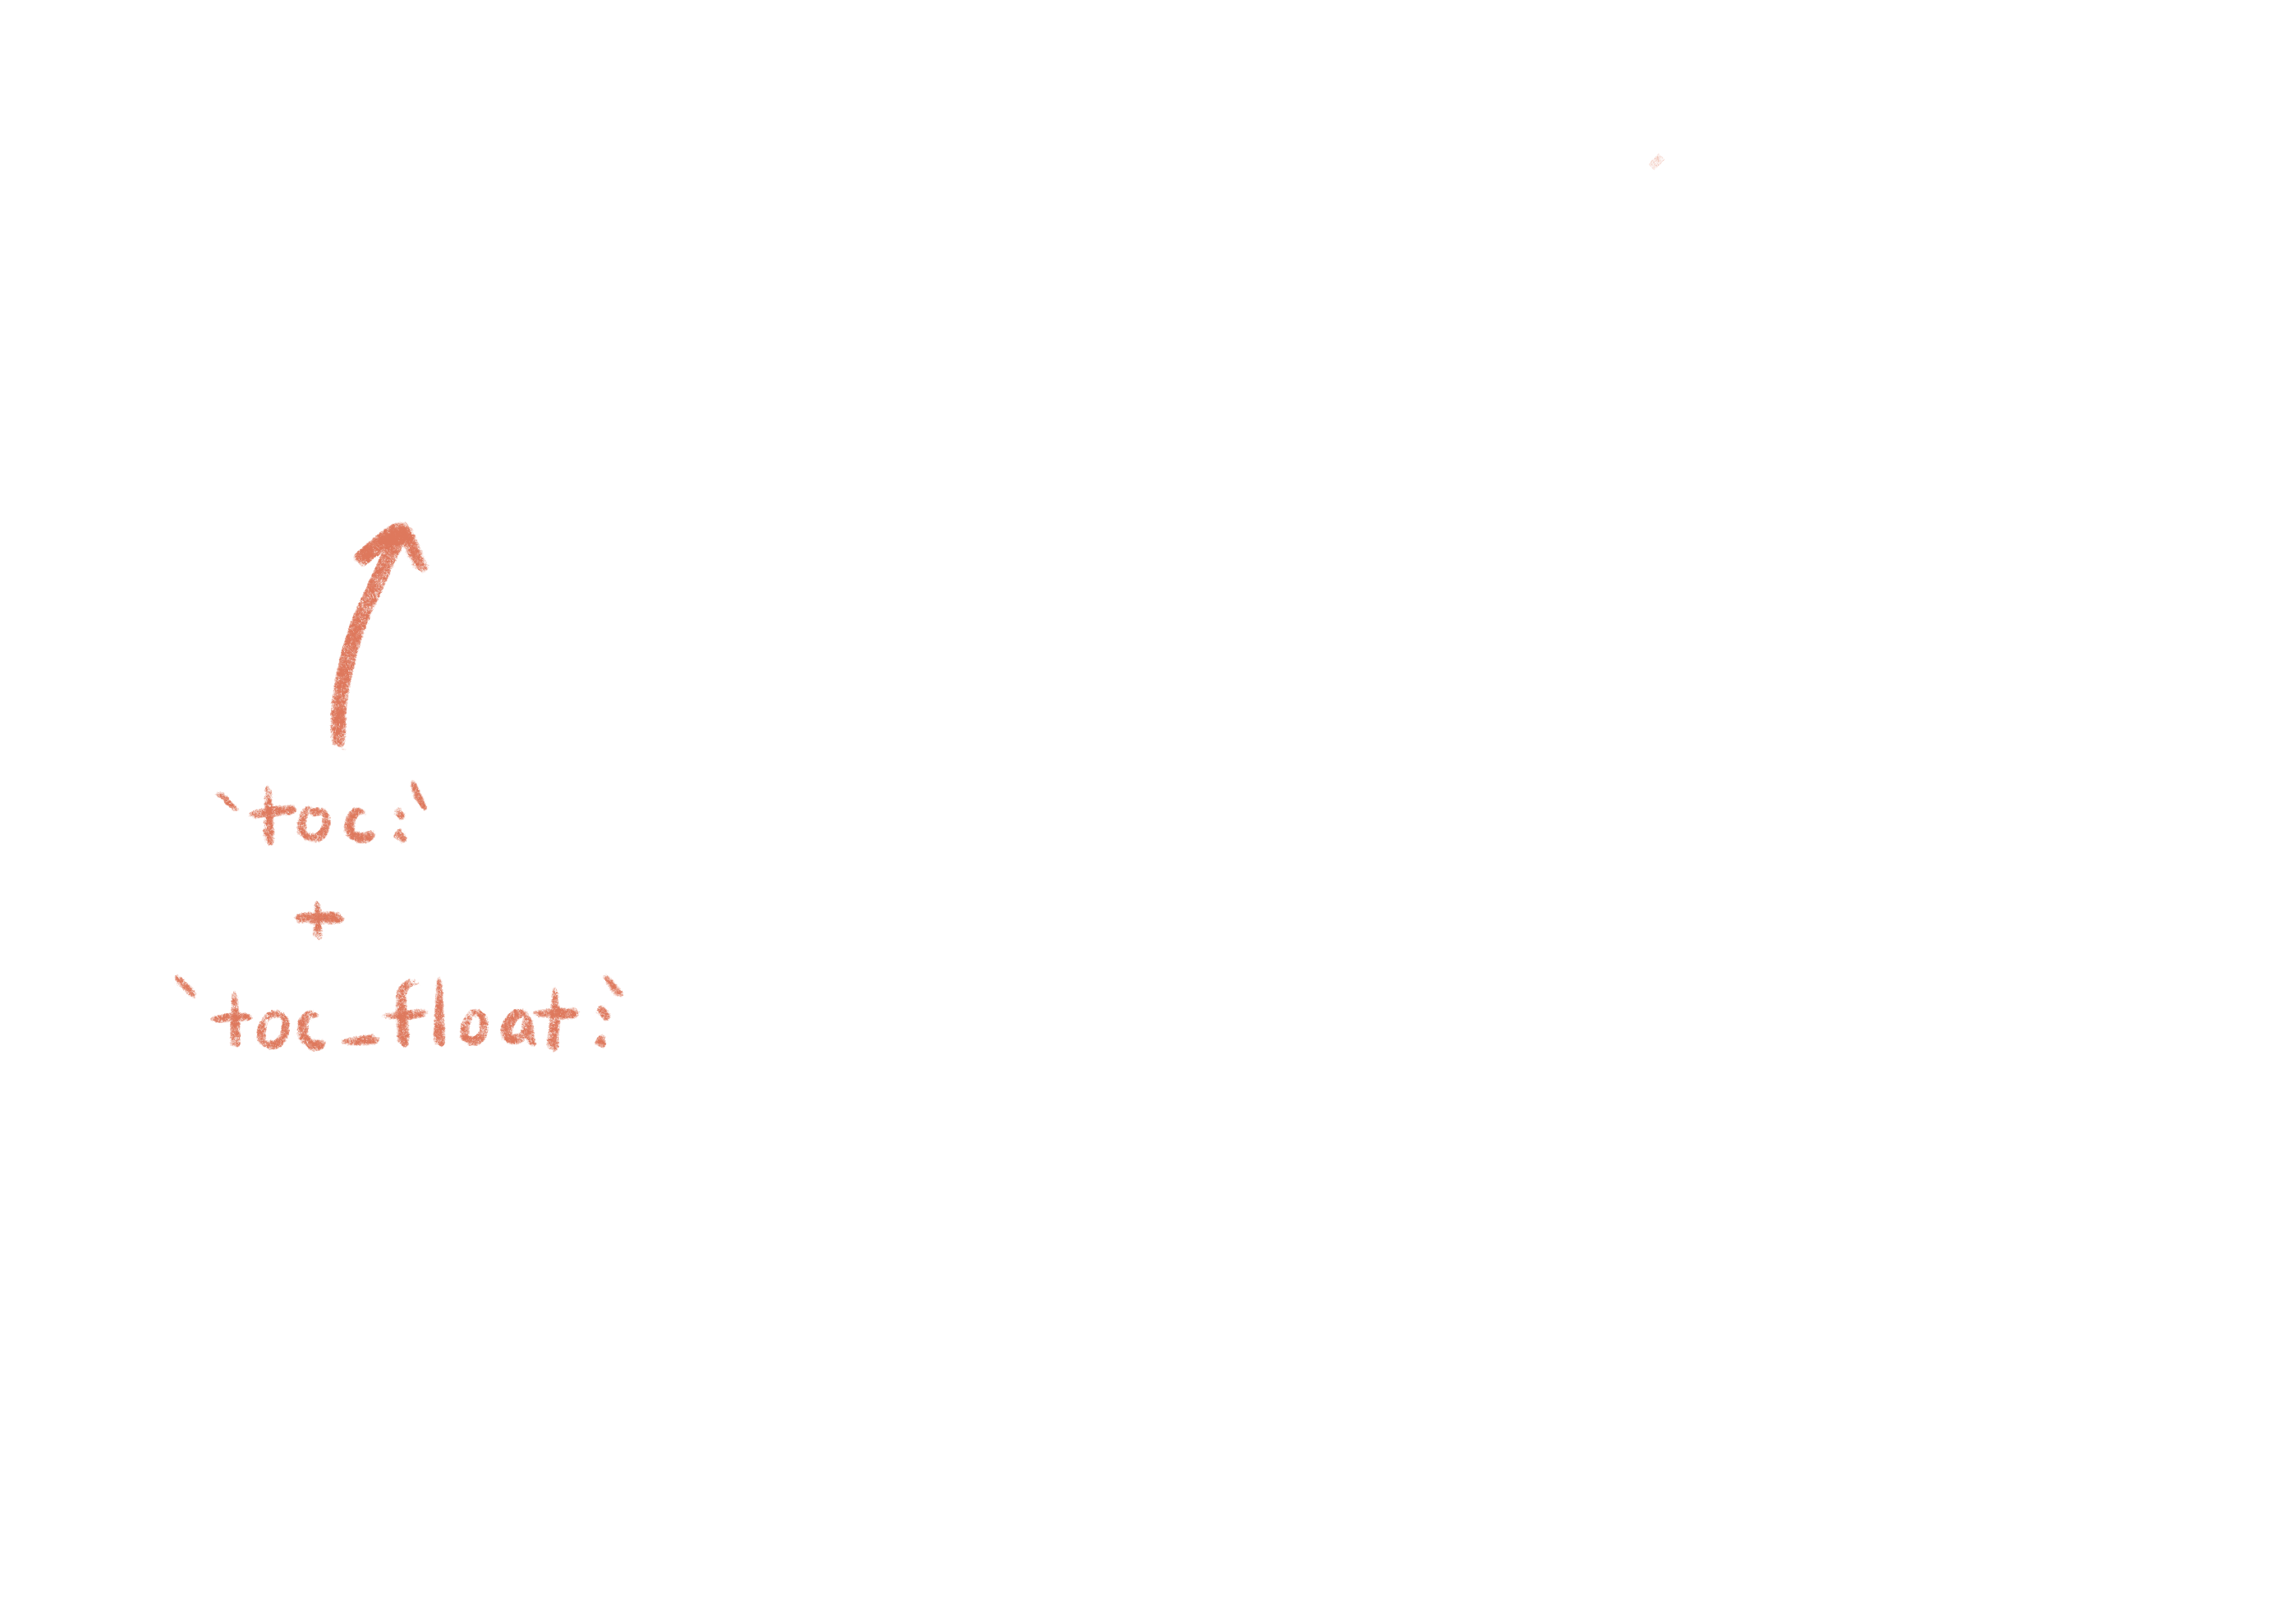 `toc:`
+
`toc_float:`